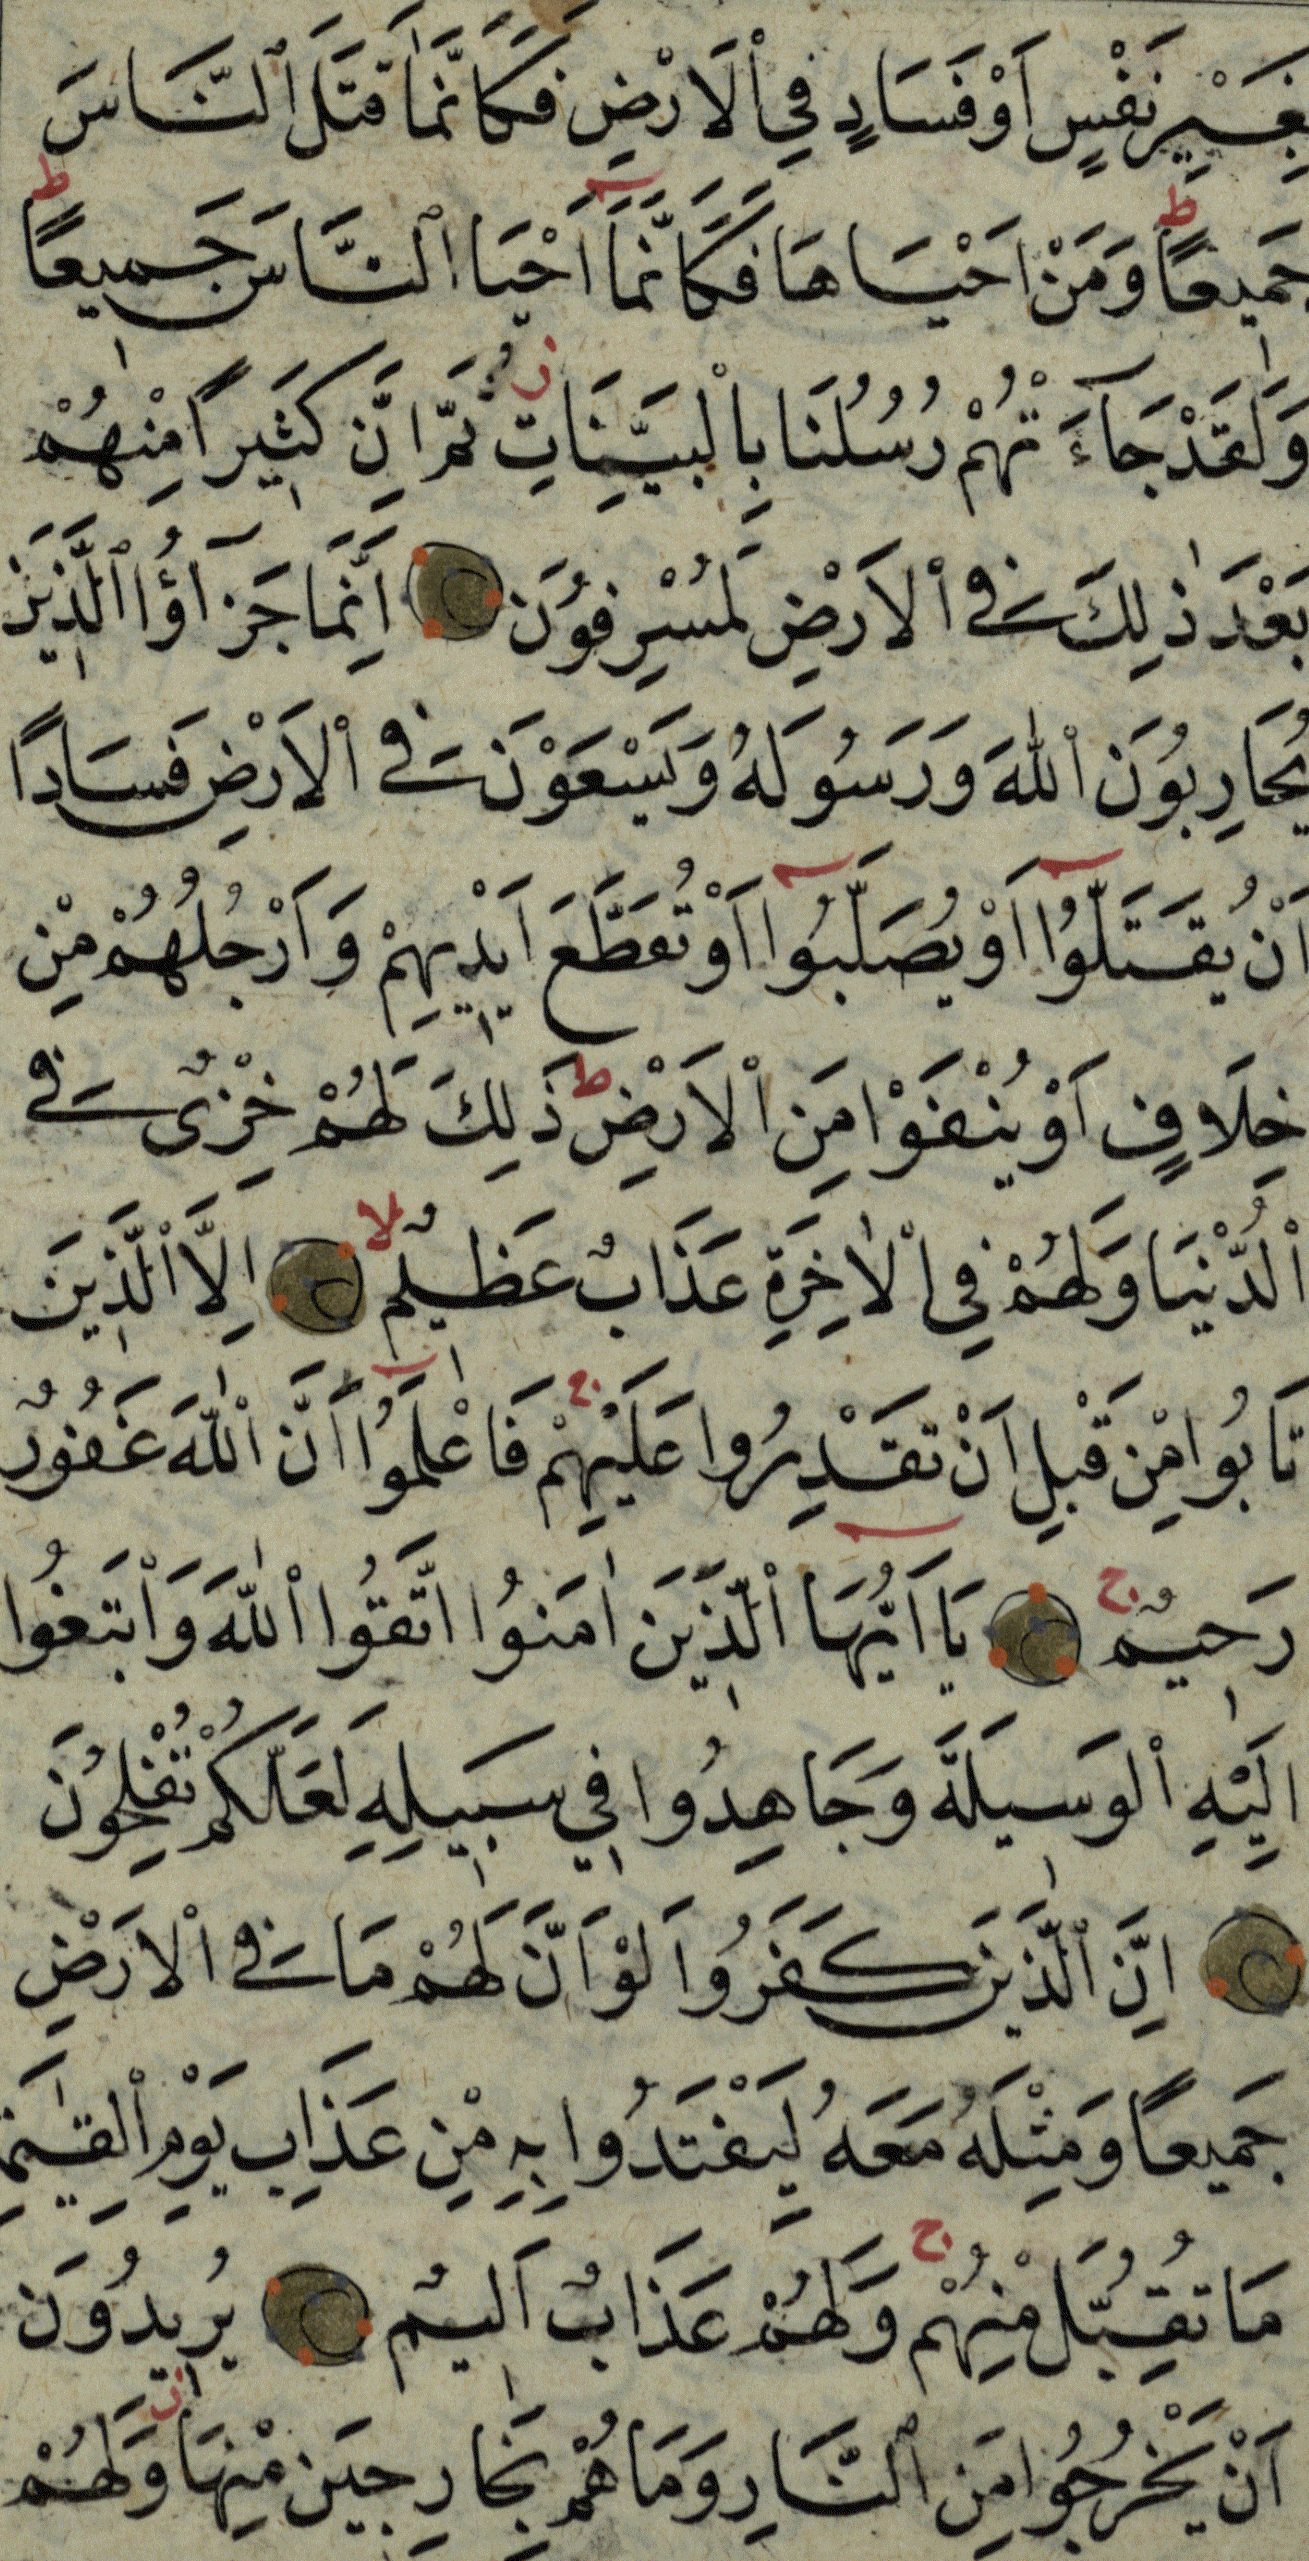 بِغَيْرِ نَفْسٍ اَوْ فَسَادٍ فِي اْلاَرْضِ فَكَاَنَّمَا قَتَلَ النَّاسَ
جَمِيعًا ط وَمَنْ اَحْيَاهَا فَكَاَنَّمَا اَحْيَا النَّاسَ جَمِيعًا ط
وَلَقَدْ جَآءَتْهُمْ رُسُلُنَا بِالْبَيِّنَاتِ ز ثُمَّ اِنَّ كَثِيرًا مِنْهُمْ
بَعْدَ ذٰلِكَ فِي اْلاَرْضِ لَمُسْرِفُونَ اِنَّمَا جَزَآؤُا الَّذِينَ
يُحَارِبُونَ اللّٰهَ وَرَسُولَهُ وَيَسْعَوْنَ فِي اْلاَرْضِ فَسَادًا
اَنْ يُقَتَّلُوا اَوْ يُصَلَّبُوا اَوْ تُقَطَّعَ اَيْدِيهِمْ وَاَرْجُلُهُمْ مِنْ
خِلَافٍ اَوْ يُنْفَوْا مِنَ اْلاَرْضِ ط ذَلِكَ لَهُمْ خِزْيٌ فِي
الدُّنْيَا وَلَهُمْ فِي اْلاٰخِرَةِ عَذَابٌ عَظِيمٌ لا اِلَّا الَّذِينَ
تَابُوا مِنْ قَبْلِ اَنْ تَقْدِرُوا عَلَيْهِمْ ج فَاعْلَمُوا اَنَّ اللّٰهَ غَفُورٌ
رَحِيمٌ ج يَا اَيُّهَا الَّذِينَ اٰمَنُوا اتَّقُوا اللّٰهَ وَابْتَغُوا
اِلَيْهِ الْوَسِيلَةَ وَجَاهِدُوا فِي سَبِيلِهِ لَعَلَّكُمْ تُفْلِحُونَ
اِنَّ الَّذِينَ كَفَرُوا لَوْ اَنَّ لَهُمْ مَا فِي اْلاَرْضِ
جَمِيعًا وَمِثْلَهُ مَعَهُ لِيَفْتَدُوا بِهِ مِنْ عَذَابِ يَوْمِ الْقِيٰمَةِ
مَا تُقُبِّلَ مِنْهُمْ ج وَلَهُمْ عَذَابٌ اَلِيمٌ يُرِيدُونَ
اَنْ يَخْرُجُوا مِنَ النَّارِ وَمَا هُمْ بِخَارِجِينَ مِنْهَا ز وَلَهُمْ